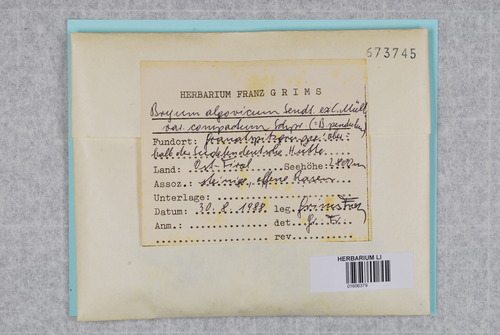 673745
HERBARIUM FRANZ GRIMS
Bryum algovicum Sendt. ex C. Müll.
var. compactum Schpr. (= B. pendulum)
Fundort: Granatspitzgruppe: ober
halb der Sudetendeutsche Hütte
Land: Ost-Tirol Seehöhe: 2800m
Assoz.: steinige, offene Rasen
Unterlage:
Datum: 30.8.1988 leg. Grims Franz
Anm.: det. Gr. Fr.
rev.
HERBARIUM LI
01606379